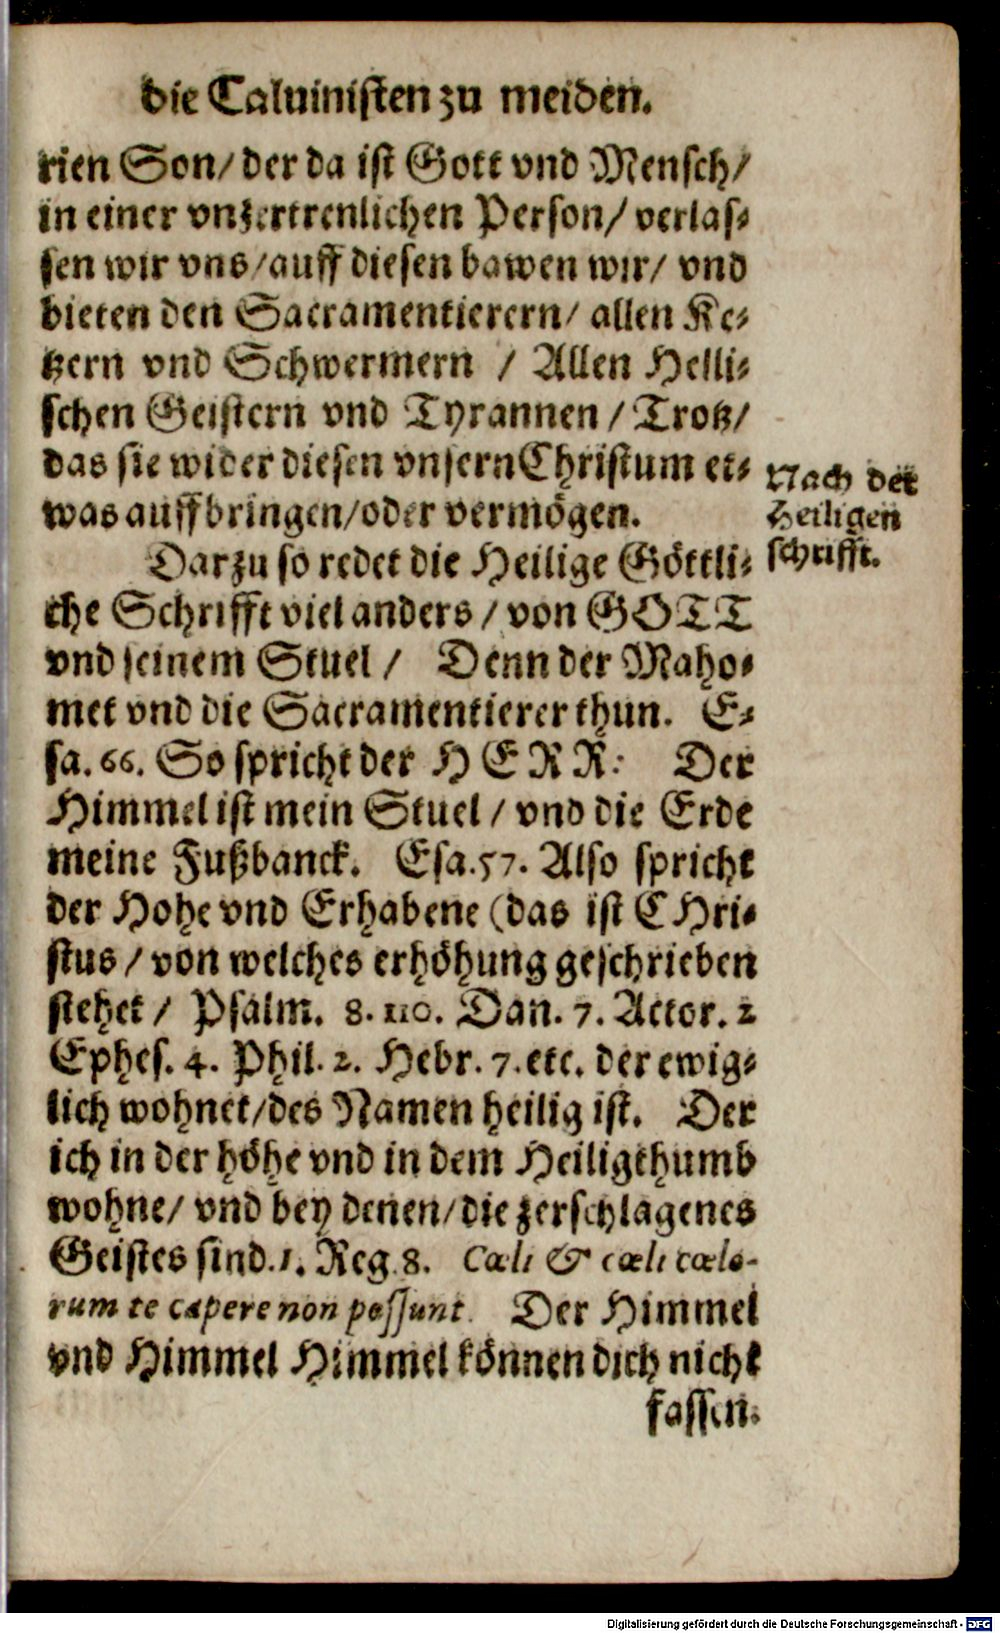 die Caluinisten zu meiden.
rien Son/ der da ist Gott vnd Mensch/
in einer vnzertrenlichen Person/ verlas⸗
sen wir vns/auff diesen bawen wir/ vnd
bieten den Sacramentierern/ allen Ke⸗
tzern vnd Schwermern / Allen Helli⸗
schen Geistern vnd Tyrannen / Trotz/
das sie wider diesen vnsern Christum et⸗
was auffbringen/oder vermögen.
Nach der
Heiligen
schrifft.
Darzu so redet die Heilige Göttli⸗
che Schrifft viel anders / von GOTT
vnd seinem Stuel / Denn der Maho⸗
met vnd die Sacramentierer thun. E⸗
sa. 66. So spricht der HERR: Der
Himmel ist mein Stuel / vnd die Erde
meine Fußbanck. Esa. 57. Also spricht
der Hohe vnd Erhabene (das ist CHri⸗
stus / von welches erhöhung geschrieben
stehet / Psalm. 8. 110. Dan. 7. Actor. 2
Ephes. 4. Phil. 2. Hebr. 7. etc. der ewig⸗
lich wohnet/des Namen heilig ist. Der
ich in der höhe vnd in dem Heiligthumb
wohne/ vnd bey denen/die zerschlagenes
Geistes sind. 1. Reg. 8. Cœli & cœli cœlo-
rum te capere non possunt. Der Himmel
vnd Himmel Himmel können dich nicht
fassen.
Digitalisierung gefördert durch die Deutsche Forschungsgemeinschaft - DFG